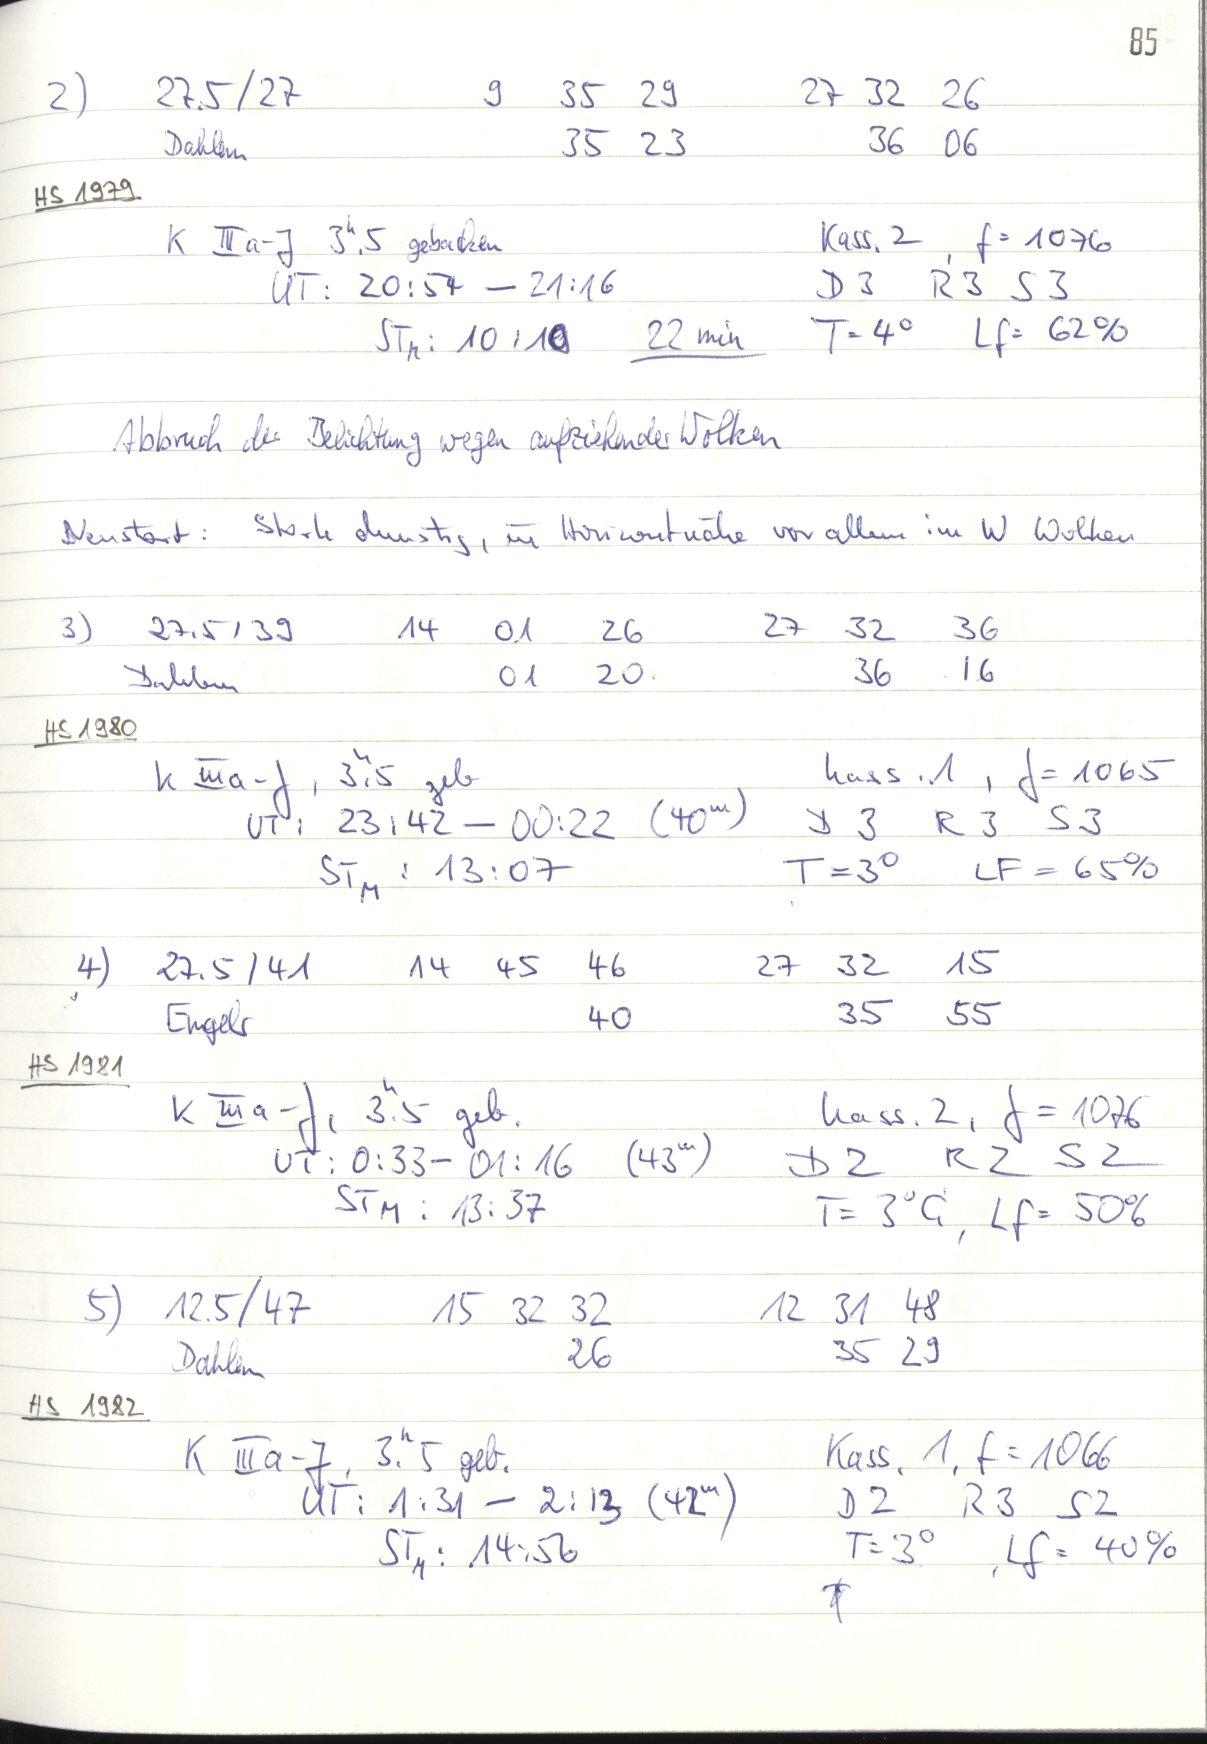 85
2) 27.5/27 9 35 29 27 32 26
Dahlem 35 23 36 06
HS 1979
K IIIa-J 3h.5 gebacken Kass. 2, f = 1076
UT: 20:54 – 21:16 D3 R3 S3
STM: 10:10 22 min T=4° Lf= 62%
Abbruch der Belichtung wegen aufziehender Wolken
Neustart: Stark dunstig, in Horizontnähe vor allem im W Wolken
3) 27.5/39 14 01 26 27 32 36
Dahlem 01 20 36 16
HS 1980
K IIIa-J, 3h.5 geb Kass. 1, f = 1065
UT: 23:42 – 00:22 (40m) D3 R3 S3
STM: 13:07 T=3° LF = 65%
4) 27.5/41 14 45 46 27 32 15
Engels 40 35 55
HS 1981
K IIIa-J, 3h.5 geb. Kass. 2, f = 1076
UT: 0:33 – 01:16 (43m) D2 R2 S2
STM: 13:37 T= 3°C, Lf= 50%
5) 12.5/47 15 32 32 12 31 48
Dahlem 26 35 29
HS 1982
K IIIa-J, 3h.5 geb. Kass. 1, f = 1066
UT: 1:31 – 2:13 (42m) D2 R3 S2
STM: 14:56 T=3°, Lf= 40%